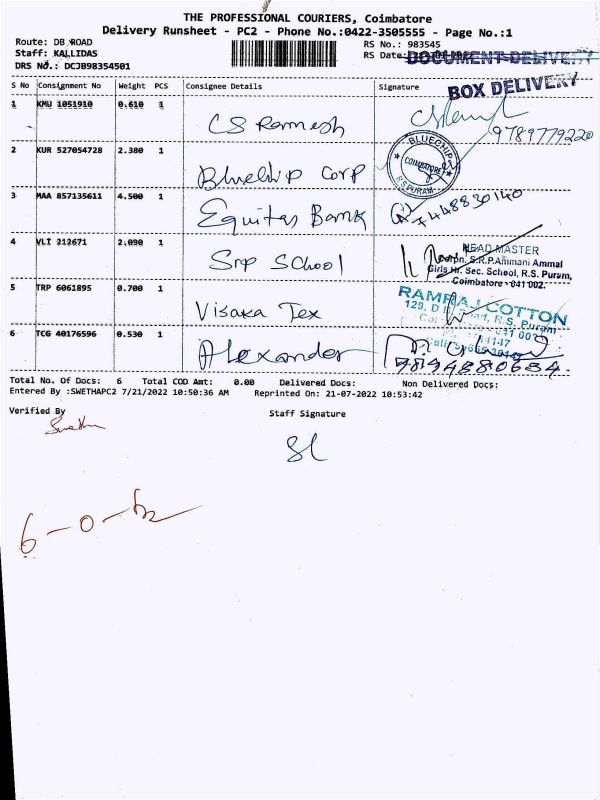 THE PROFESSIONAL COURIERS, Coimbatore
Delivery Runsheet - PC2 - Phone No.:0422-3505555 - Page No.:1
Route: DB ROAD
Staff: KALLIDAS
DRS NO.: DCJB98354501
RS No.: 983545
RS Date:
DOCUMENT DELIVERY
BOX DELIVERY
S No Consignment No Weight PCS Consignee Details Signature
1 KMU 1051910 0.610 1 CS Ramesh 9789779220
2 KUR 527054728 2.380 1 Bluechip Corp
BLUECHIP
COIMBATORE
R.S PURAM
3 MAA 857135611 4.500 1 Equitas Bank 7448830140
4 VLI 212671 2.090 1 Srp School
HEAD MASTER
Corpn. S.R.P.Ammani Ammal
Girls Hr. Sec. School, R.S. Puram,
Coimbatore - 641 002.
5 TRP 6061895 0.700 1 Visaka Tex
RAMRAJ COTTON
129, D.B. Road, R.S. Puram
6 TCG 40176596 0.530 1 Alexander
9894880684
Total No. Of Docs: 6 Total COD Amt: 0.00 Delivered Docs: Non Delivered Docs:
Entered By :SWETHAPC2 7/21/2022 10:50:36 AM Reprinted On: 21-07-2022 10:53:42
Verified By
Swetha
Staff Signature